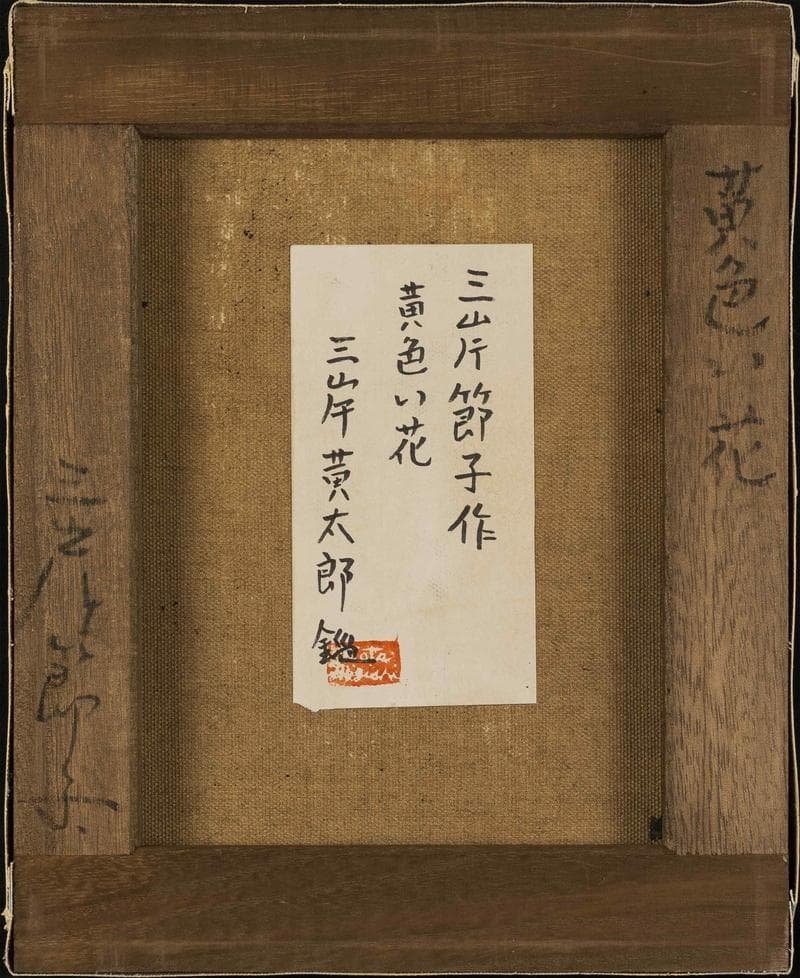 黄色い花
三岸節子作
黄色い花
三岸黄太郎 鑑
三岸節子